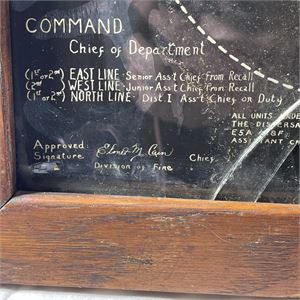 COMMAND
Chief of Department
(1st or 2nd) EAST LINE - Senior Ass't Chief From Recall
(2nd) WEST LINE - Junior Ass't Chief From Recall
(1st or 2nd) NORTH LINE - Dist. I Ass't Chief or Duty
ALL UNITS
THE DISPERSA
ESA
ASSISTANT
Approved:
Signature Elmer M. Cain Chief
Division of Fire